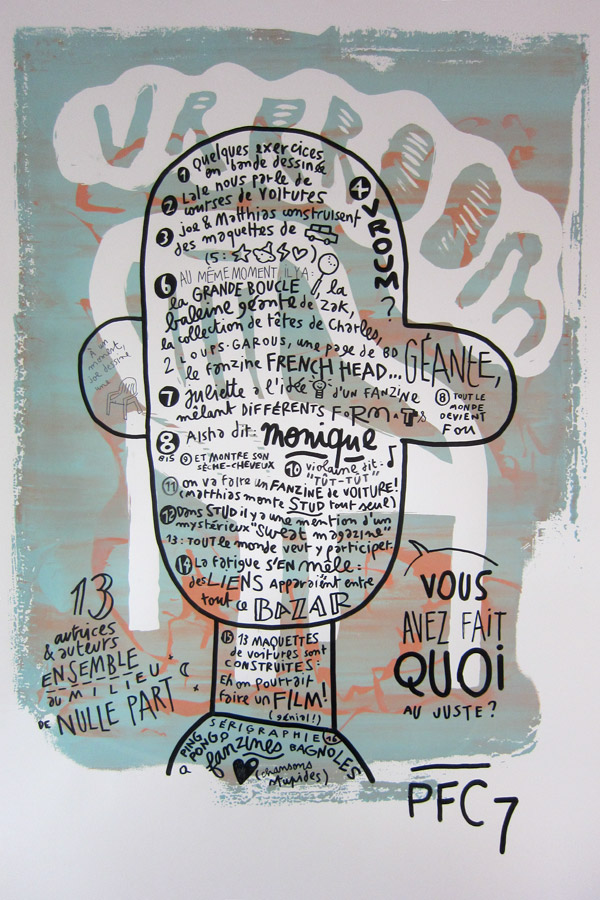 VRBROOOM
1 Quelques exercices
en bande dessinée
2 Lale nous parle de
courses de voitures
3 Joe & Matthias construisent
des maquettes de
4 VROUM ?
(5:
6 AU MÊME MOMENT, IL Y A:
la GRANDE BOUCLE , la
baleine géante de Zak,
la collection de têtes de Charles,
2 LOUPS-GAROUS, une page de BD
le fanzine FRENCH HEAD... GÉANTE,
À un
moment,
Joe dessine
une
7 Juliette a l'idée d'UN FANZINE
mêlant DIFFÉRENTS FORMATS
8 TOUT LE
MONDE
DEVIENT
FOU
8 BIS Aisha dit: monique
9 ET MONTRE SON
SÈCHE-CHEVEUX
10 violaine dit:
"TÛT-TÛT"
11 on va faire un FANZINE de VOITURE!
(Matthias monte STUD tout seul)
12 Dans STUD il y a une mention d'un
mystérieux "Sweat magazine"
13: TOUT le monde peut y participer.
14 La fatigue S'EN mêle:
des LIENS Apparaiènt entre
tout ce BAZAR
15 13 MAQUETTES
de voitures sont
CONSTRUITES:
Eh on pourrait
faire un FILM!
(génial!)
SÉRIGRAPHIE 16
PING
PONGS
fanzines BAGNOLES
à (chansons
stupides)
13
autrices
& auteurs
ENSEMBLE
au MILIEU
DE NULLE PART
VOUS
AVEZ FAIT
QUOI
AU JUSTE?
PFC7